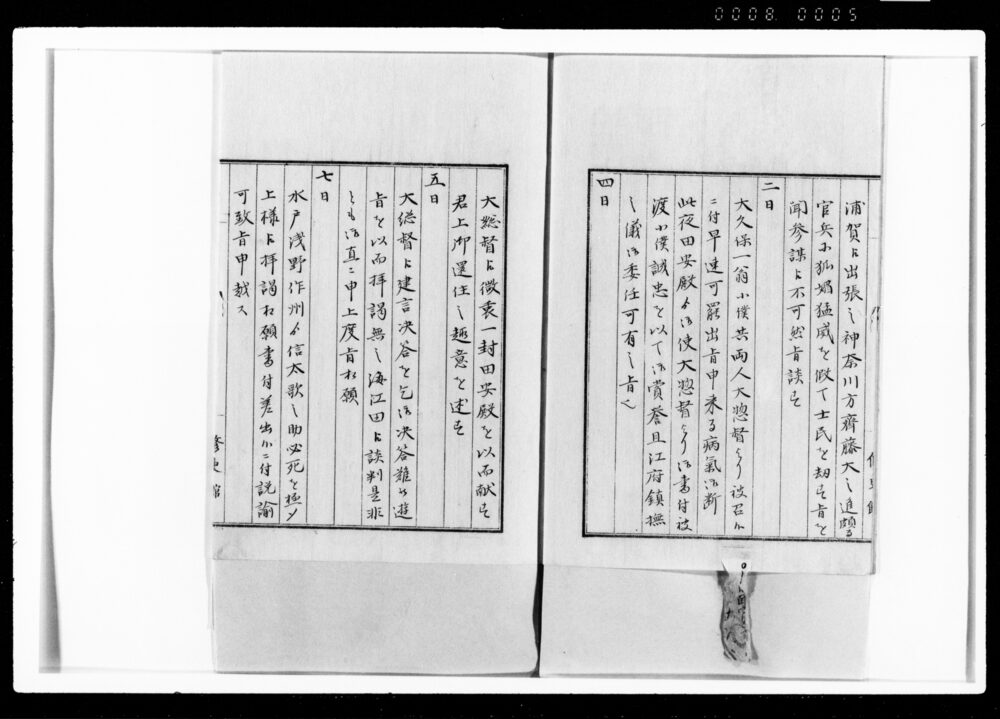 0008 0005
浦賀ニ出張之神奈川方齊藤大之進頗る
官兵の狐媚猛威を假て士民を劫す旨を
聞参謀に不可然旨談す
二日
大久保一翁小僕共両人大惣督より被召候
ニ付早速可罷出旨申来る病氣御断
此夜田安殿より御使大惣督より御書付被
渡小僕誠忠を以て御賞誉且江府鎮撫
之儀御委任可有之旨也
四日
大総督に微衷一封田安殿を以而献す
君上御還住之趣意を述す
五日
大総督に建言決答を乞御決答難被遊
旨を以而拝謁無之海江田に談判是非
とも御直ニ申上度旨相願
七日
水戸浅野作州より信太歌之助必死を極メ
上様に拝謁相願書付差出候ニ付説諭
可致旨申越ス
修史館